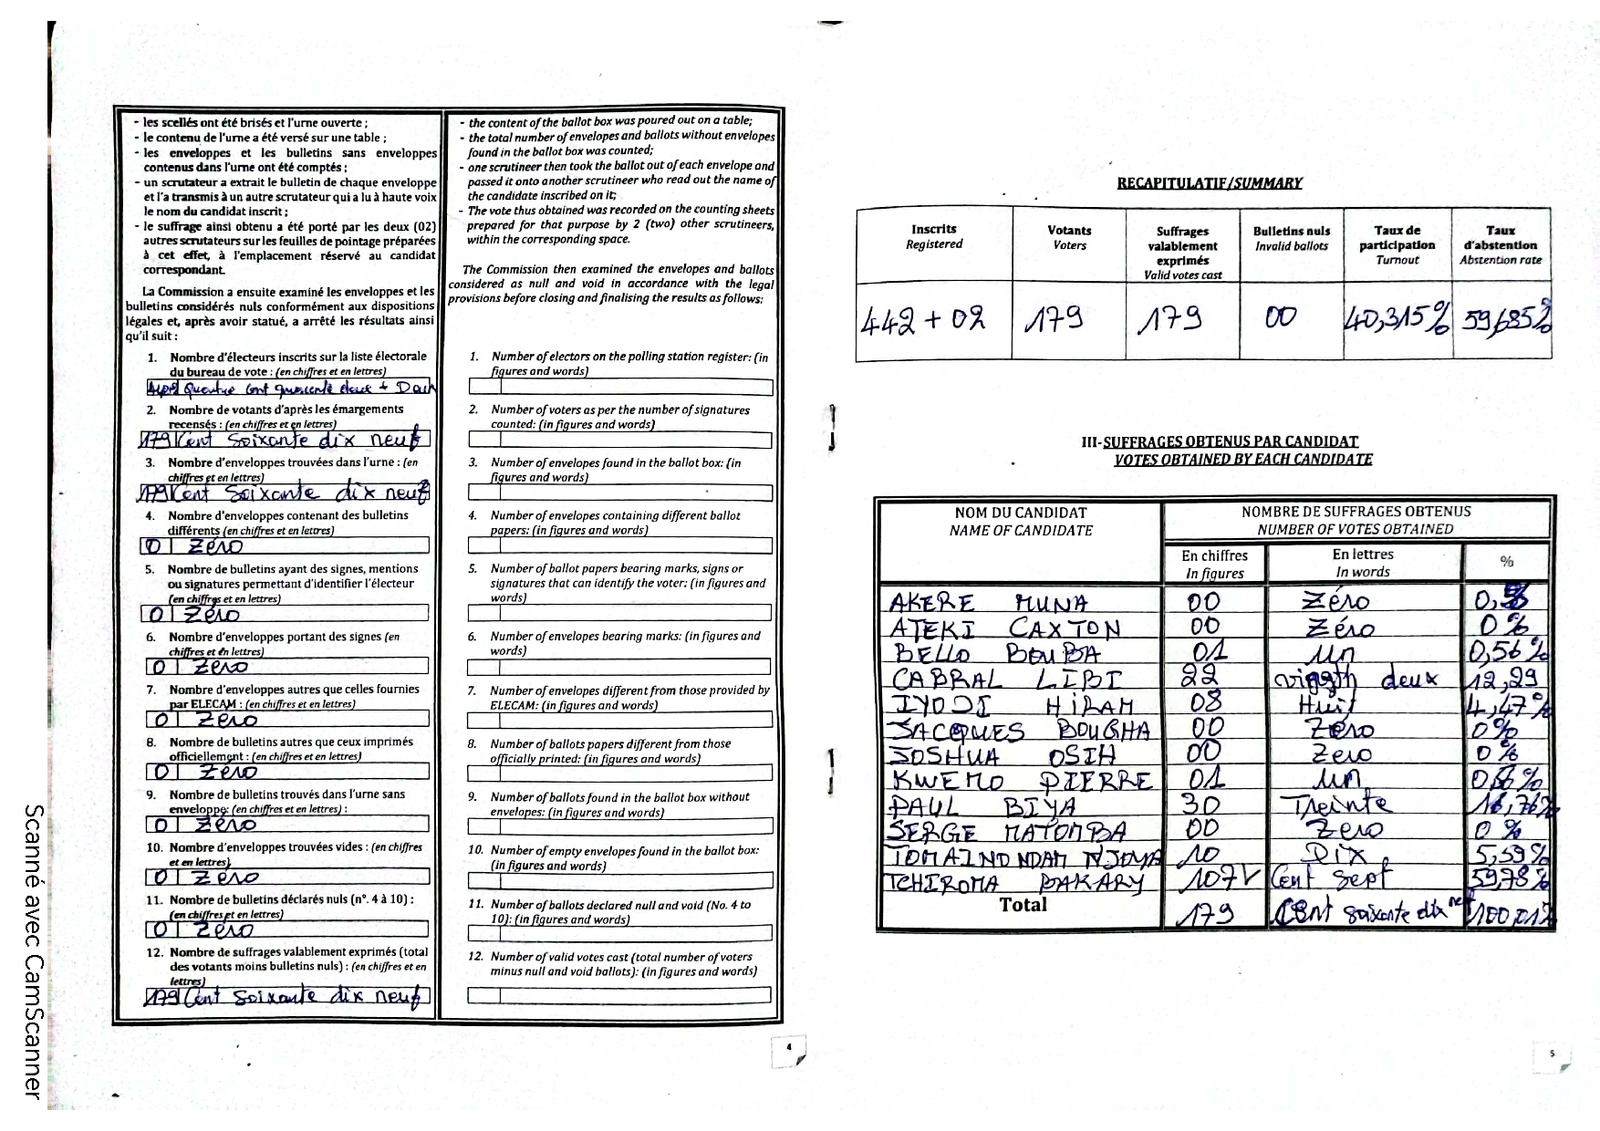 - les scellés ont été brisés et l'urne ouverte ;
- le contenu de l'urne a été versé sur une table ;
- les enveloppes et les bulletins sans enveloppes
contenus dans l'urne ont été comptés ;
- un scrutateur a extrait le bulletin de chaque enveloppe
et l'a transmis à un autre scrutateur qui a lu à haute voix
le nom du candidat inscrit ;
- le suffrage ainsi obtenu a été porté par les deux (02)
autres scrutateurs sur les feuilles de pointage préparées
à cet effet, à l'emplacement réservé au candidat
correspondant.
La Commission a ensuite examiné les enveloppes et les
bulletins considérés nuls conformément aux dispositions
légales et, après avoir statué, a arrêté les résultats ainsi
qu'il suit :
1. Nombre d'électeurs inscrits sur la liste électorale
du bureau de vote : (en chiffres et en lettres)
Quatre cent quarante deux +
2. Nombre de votants d'après les émargements
recensés : (en chiffres et en lettres)
179 Cent soixante dix neuf
3. Nombre d'enveloppes trouvées dans l'urne : (en
chiffres et en lettres)
179 Cent soixante dix neuf
4. Nombre d'enveloppes contenant des bulletins
différents (en chiffres et en lettres)
0 Zéro
5. Nombre de bulletins ayant des signes, mentions
ou signatures permettant d'identifier l'électeur
(en chiffres et en lettres)
0 Zéro
6. Nombre d'enveloppes portant des signes (en
chiffres et en lettres)
0 Zéro
7. Nombre d'enveloppes autres que celles fournies
par ELECAM : (en chiffres et en lettres)
0 Zéro
8. Nombre de bulletins autres que ceux imprimés
officiellement : (en chiffres et en lettres)
0 Zéro
9. Nombre de bulletins trouvés dans l'urne sans
enveloppe: (en chiffres et en lettres) :
0 Zéro
10. Nombre d'enveloppes trouvées vides : (en chiffres
et en lettres)
0 Zéro
11. Nombre de bulletins déclarés nuls (n°. 4 à 10) :
(en chiffres et en lettres)
0 Zéro
12. Nombre de suffrages valablement exprimés (total
des votants moins bulletins nuls) : (en chiffres et en
lettres)
179 Cent soixante dix neuf
- the content of the ballot box was poured out on a table;
- the total number of envelopes and ballots without envelopes
found in the ballot box was counted;
- one scrutineer then took the ballot out of each envelope and
passed it onto another scrutineer who read out the name of
the candidate inscribed on it;
- The vote thus obtained was recorded on the counting sheets
prepared for that purpose by 2 (two) other scrutineers,
within the corresponding space.
The Commission then examined the envelopes and ballots
considered as null and void in accordance with the legal
provisions before closing and finalising the results as follows:
1. Number of electors on the polling station register: (in
figures and words)
2. Number of voters as per the number of signatures
counted: (in figures and words)
3. Number of envelopes found in the ballot box: (in
figures and words)
4. Number of envelopes containing different ballot
papers: (in figures and words)
5. Number of ballot papers bearing marks, signs or
signatures that can identify the voter: (in figures and
words)
6. Number of envelopes bearing marks: (in figures and
words)
7. Number of envelopes different from those provided by
ELECAM: (in figures and words)
8. Number of ballots papers different from those
officially printed: (in figures and words)
9. Number of ballots found in the ballot box without
envelopes: (in figures and words)
10. Number of empty envelopes found in the ballot box:
(in figures and words)
11. Number of ballots declared null and void (No. 4 to
10): (in figures and words)
12. Number of valid votes cast (total number of voters
minus null and void ballots): (in figures and words)
4
RECAPITULATIF/SUMMARY
Inscrits
Registered
Votants
Voters
Suffrages
valablement
exprimés
Valid votes cast
Bulletins nuls
Invalid ballots
Taux de
participation
Turnout
Taux
d'abstention
Abstention rate
442 + 02 179 179 00 40,315% 59,685%
III-SUFFRAGES OBTENUS PAR CANDIDAT
VOTES OBTAINED BY EACH CANDIDATE
NOM DU CANDIDAT
NAME OF CANDIDATE
NOMBRE DE SUFFRAGES OBTENUS
NUMBER OF VOTES OBTAINED
En chiffres
In figures
En lettres
In words
%
AKERE MUNA 00 Zéro 0,
ATEKI CAXTON 00 Zéro 0%
BELLO BOUBA 01 un 0,56%
CABRAL LIBI 22 deux 12,29
IYODI HIRAM 08 Huit 4,47%
JACQUES BOUGHA 00 Zéro 0%
JOSHUA OSIH 00 Zero 0%
KWEMO PIERRE 01 un 0,56%
PAUL BIYA 30 Treinte 16,76%
SERGE MATOMBA 00 Zero 0%
TOMAINO NDAM NJOYA 10 Dix 5,59%
TCHIROMA BAKARY 107 Cent sept 59,78%
Total 179 Cent soixante dix neuf 100,01%
5
Scanné avec CamScanner